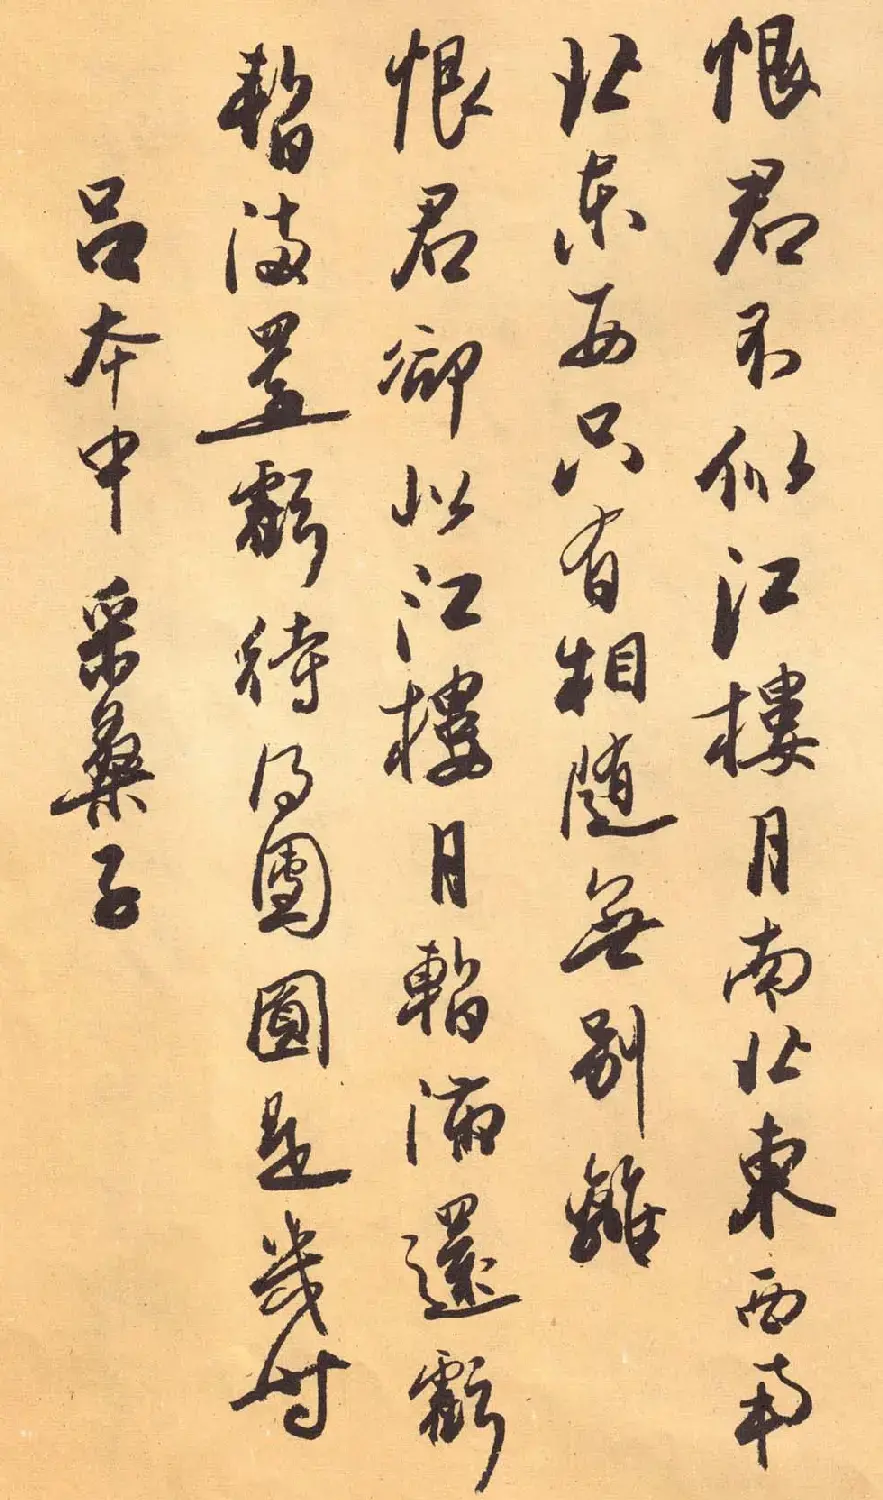 恨君不似江樓月南北東西南
北东西只有相随無别離
恨君卻似江樓月暫滿還虧
暫滿還虧待得團圓是幾时
吕本中 采桑子